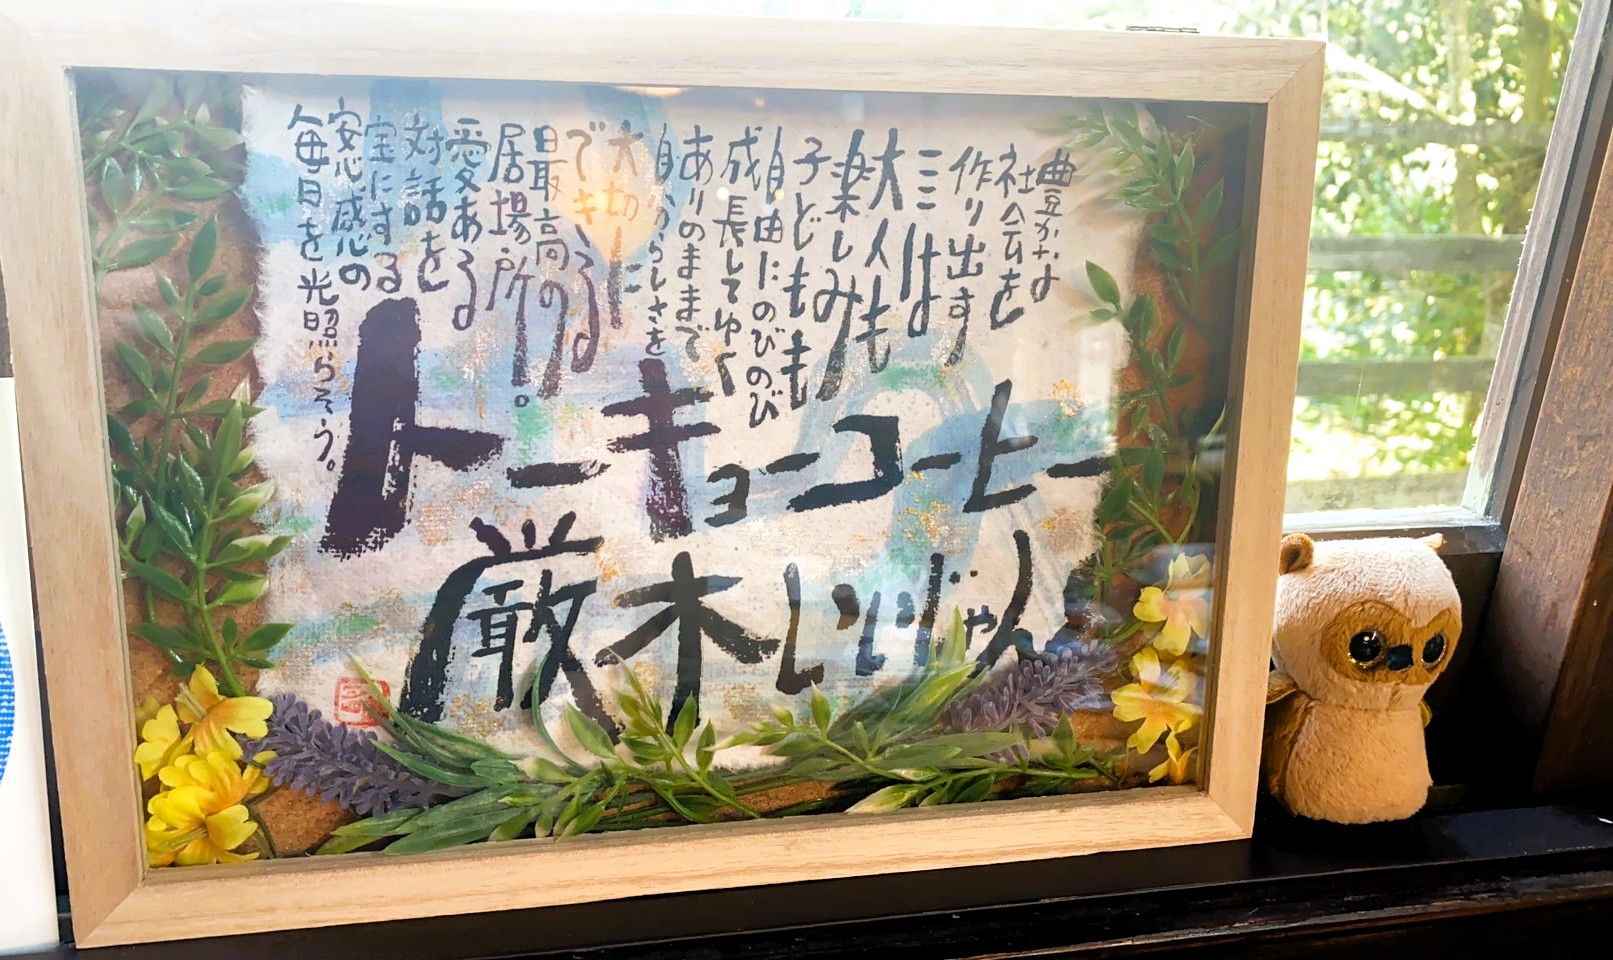 豊かな
社会を
作り出す
大人も
楽しみ
子どもも
自由にのびのび
成長してゆく
ありのままで
自分らしさを
大切に
できる
最高の
居場所。
愛ある
対話を
宝にする
安心感の
毎日を光照らそう。
トーキョーコーヒー
厳木いいじゃん